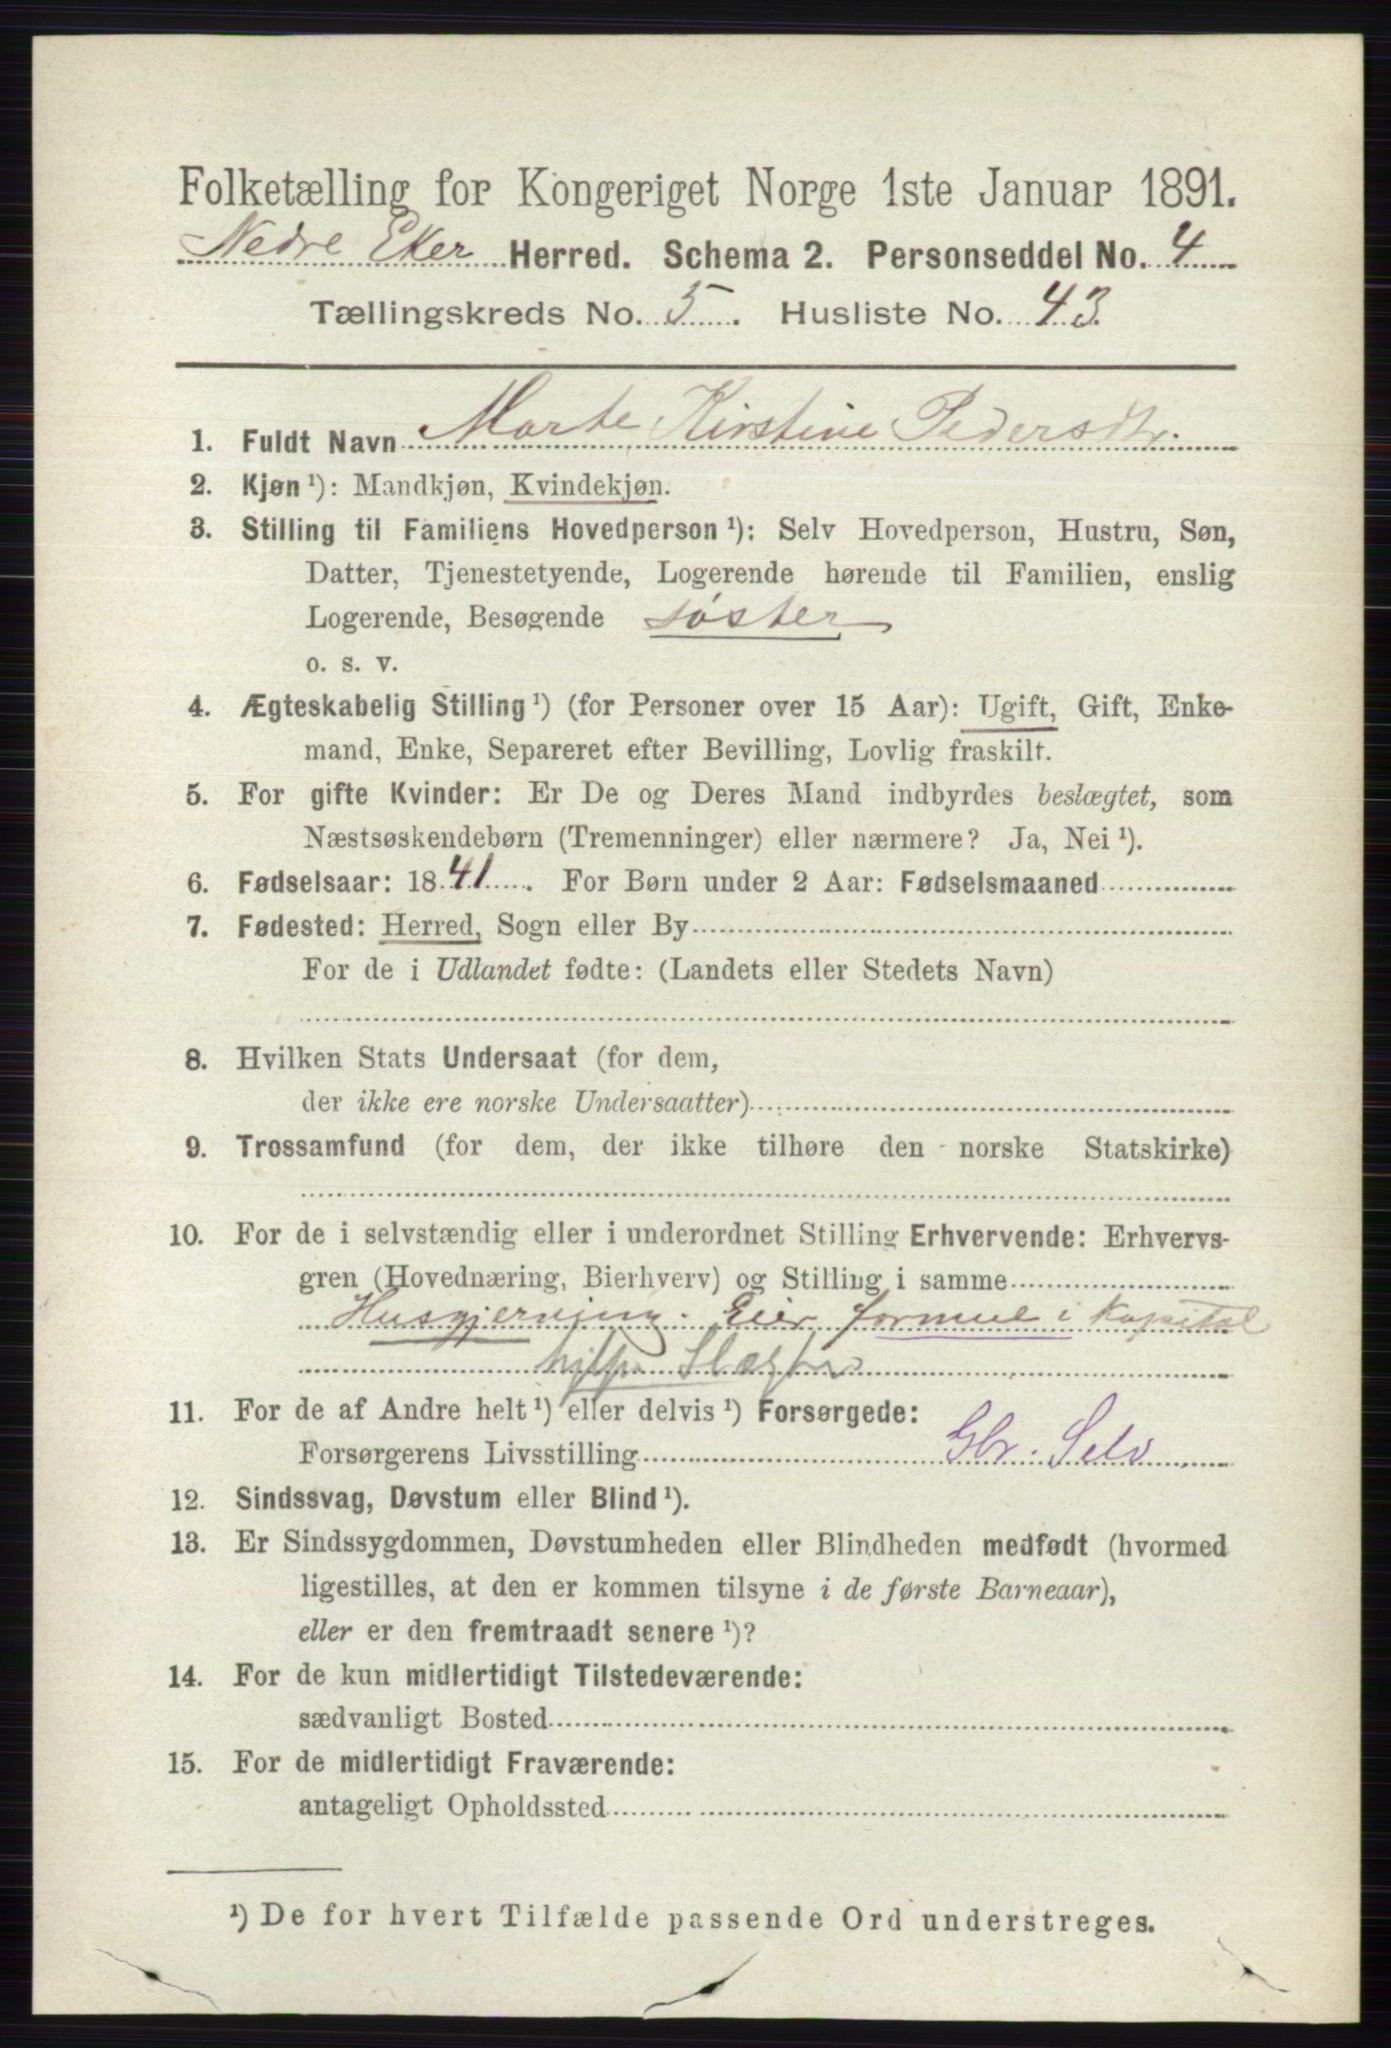 Folketælling for Kongeriget Norge 1ste Januar 1891.
Nedre Eker Herred. Schema 2. Personseddel No. 4
Tællingskreds No. 5. Husliste No. 43.
1. Fuldt Navn Marte Kirstine Pedersdtr.
2. Kjøn ¹): Mandkjøn, Kvindekjøn.
3. Stilling til Familiens Hovedperson ¹): Selv Hovedperson, Hustru, Søn,
Datter, Tjenestetyende, Logerende hørende til Familien, enslig
Logerende, Besøgende søster
o. s. v.
4. Ægteskabelig Stilling ¹) (for Personer over 15 Aar): Ugift, Gift, Enke-
mand, Enke, Separeret efter Bevilling, Lovlig fraskilt.
5. For gifte Kvinder: Er De og Deres Mand indbyrdes beslægtet, som
Næstsøskendebørn (Tremenninger) eller nærmere? Ja, Nei ¹).
6. Fødselsaar: 1841. For Børn under 2 Aar: Fødselsmaaned
7. Fødested: Herred, Sogn eller By
For de i Udlandet fødte: (Landets eller Stedets Navn)
8. Hvilken Stats Undersaat (for dem,
der ikke ere norske Undersaatter)
9. Trossamfund (for dem, der ikke tilhøre den norske Statskirke)
10. For de i selvstændig eller i underordnet Stilling Erhvervende: Erhvervs-
gren (Hovednæring, Bierhverv) og Stilling i samme
Husgjerning. Eier formue i Kapital
11. For de af Andre helt ¹) eller delvis ¹) Forsørgede:
Forsørgerens Livsstilling Gbr. Selv
12. Sindssvag, Døvstum eller Blind ¹).
13. Er Sindssygdommen, Døvstumheden eller Blindheden medfødt (hvormed
ligestilles, at den er kommen tilsyne i de første Barneaar),
eller er den fremtraadt senere ¹)?
14. For de kun midlertidigt Tilstedeværende:
sædvanligt Bosted
15. For de midlertidigt Fraværende:
antageligt Opholdssted
¹) De for hvert Tilfælde passende Ord understreges.